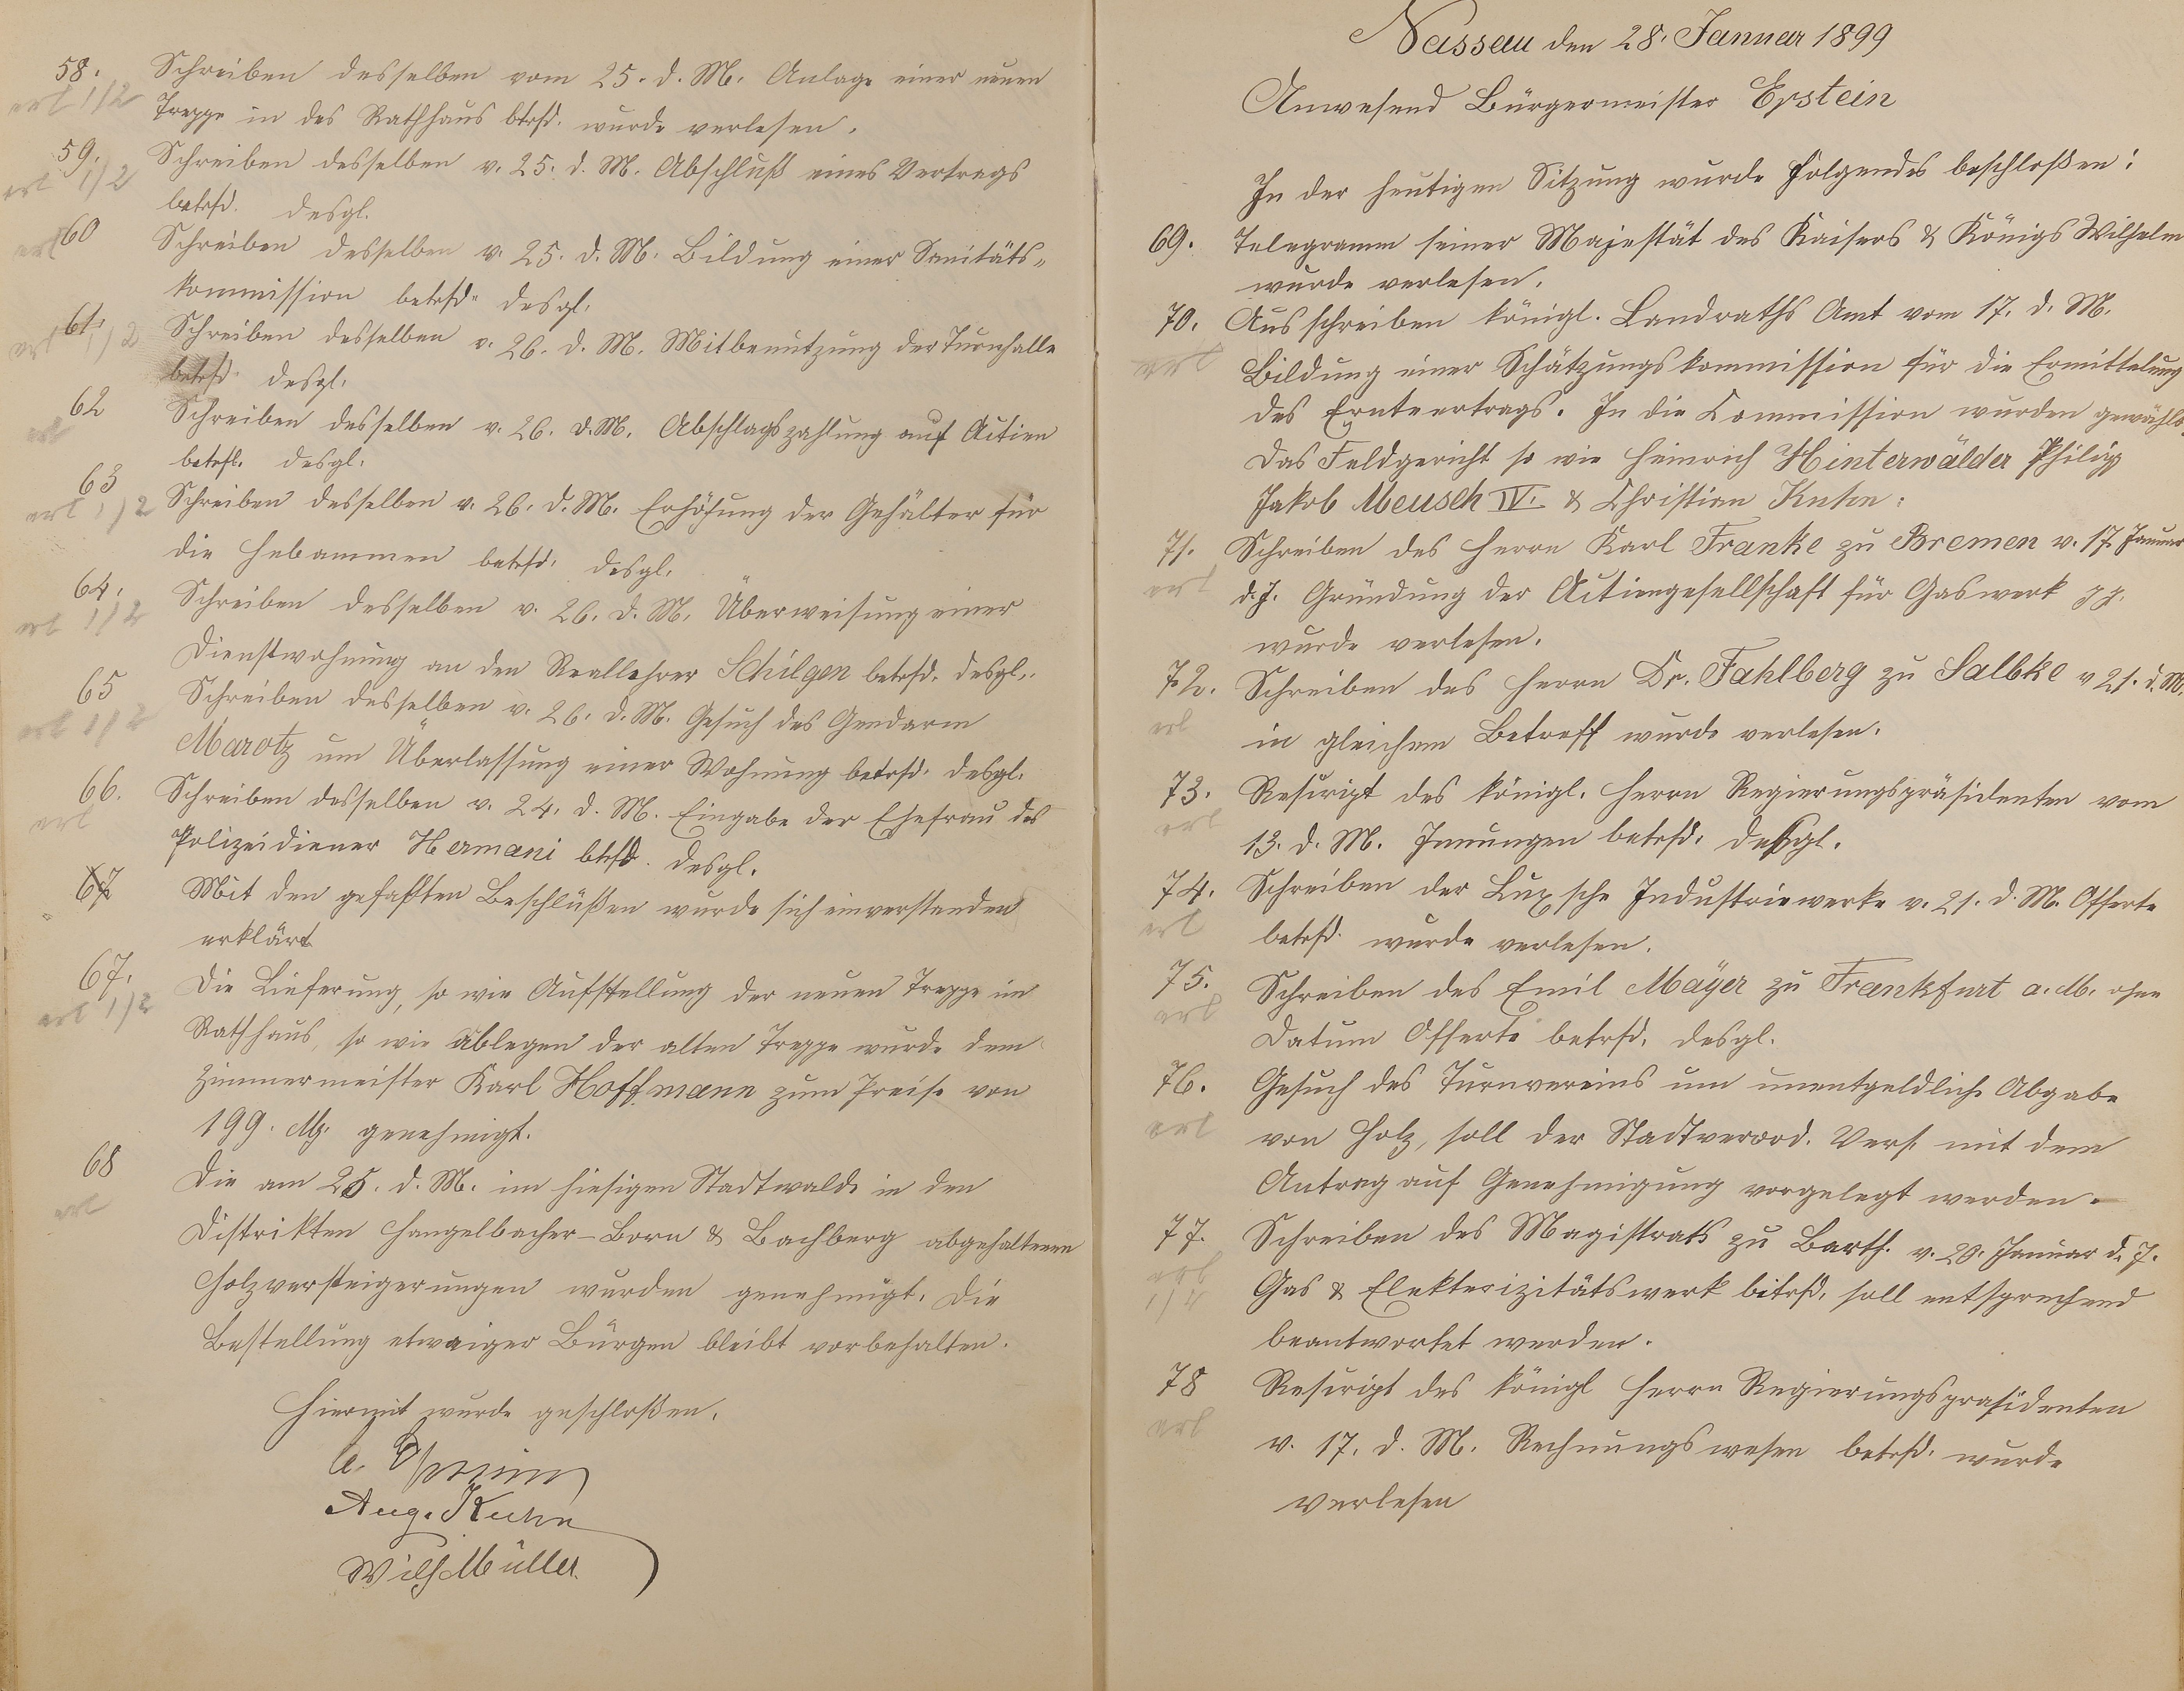 58. Schreiben desselben vom 25. d. M. Anlage einer neuen
erl 1/2 Treppe in das Rathhaus btrfd. wurde verlesen.
59. Schreiben desselben v. 25. d. M. Abschluß eines Vertrags
erl 1/2 betrfd. desgl.
60 Schreiben desselben v. 25. d. M. Bildung einer Sanitäts-
erl kommission betrfd. desgl.
61. Schreiben desselben v. 26. d. M. Mitbenutzung der Turnhalle
erl 1/2 betrfd. desgl.
62 Schreiben desselben v. 26. d. M. Abschlagszahlung auf Actien
erl betrfd. desgl.
63 Schreiben desselben v. 26. d. M. Erhöhung der Gehälter für
erl 1/2 die Hebammen betrfd. desgl.
64. Schreiben desselben v. 26. d. M. Überweisung einer
erl 1/2 Dienstwohnung an den Reallehrer Schilgen betrfd. desgl.
65 Schreiben desselben v. 26. d. M. Gesuch des Gendarm
erl 1/2 Marotz um Überlassung einer Wohnung betrfd. desgl.
66. Schreiben desselben v. 24. d. M. Eingabe der Ehefrau des
erl Polizeidiener Hermani btrfd. desgl.
67 Mit den gefaßten Beschlüßen wurde sich einverstanden
erklärt
67. Die Lieferung, so wie Aufstellung der neuen Treppe im
erl 1/2 Rathhaus, so wie Ablegen der alten Treppe wurde dem
Zimmermeister Karl Hoffmann zum Preise von
199. M. genehmigt.
68 Die am 25. d. M. im hiesigen Stadtwalde in den
erl Distrikten Hangelbacher-Born & Bachberg abgehaltenen
Holzversteigerungen wurden genehmigt. Die
Bestellung etwaiger Bürgen bleibt vorbehalten.
Hiermit wurde geschloßen.
Aug. Kuhn
Wilh Müller
Nassau den 28. Januar 1899
Anwesend Bürgermeister Epstein
In der heutigen Sitzung wurde Folgendes beschloßen:
69. Telegramm seiner Majestät des Kaisers & Königs Wilhelm
wurde verlesen.
70. Ausschreiben königl. Landraths Amt vom 17. d. M.
erl Bildung einer Schätzungskommission für die Ermittelung
des Ernteertrags. In die Commission wurden gewählt
das Feldgericht so wie Heinrich Hinterwälder Philipp
Jakob Meusch IV. & Christian Kuhn:
71. Schreiben des Herrn Karl Franke zu Bremen v. 17. Januar
erl d. J. Gründung der Actiengesellschaft für Gaswerk pp.
wurde verlesen.
72. Schreiben des Herrn Dr. Fahlberg zu Salbke v 21. d. M.
erl in gleichem Betreff wurde verlesen.
73. Rescript des königl. Herrn Regierungspräsidenten vom
erl 13. d. M. Innungen betrfd. desgl.
74. Schreiben der Lux'sche Industriewerke v. 21. d. M. Offerte
erl betrfd. wurde verlesen.
75. Schreiben des Emil Mayer zu Frankfurt a. M. ohne
erl Datum Offerte betrfd. desgl.
76. Gesuch des Turnvereins um unentgeldliche Abgabe
erl von Holz, soll der Stadtverord. Vers. mit dem
Antrag auf Genehmigung vorgelegt werden.
77. Schreiben des Magistrats zu Barth. v. 20. Januar d. J.
erl Gas & Elekterizitätswerk betrfd. soll entsprechend
1/4 beantwortet werden.
78 Rescript des königl Herrn Regierungspräsidenten
erl v. 17. d. M. Rechnungswesen betrfd. wurde
verlesen